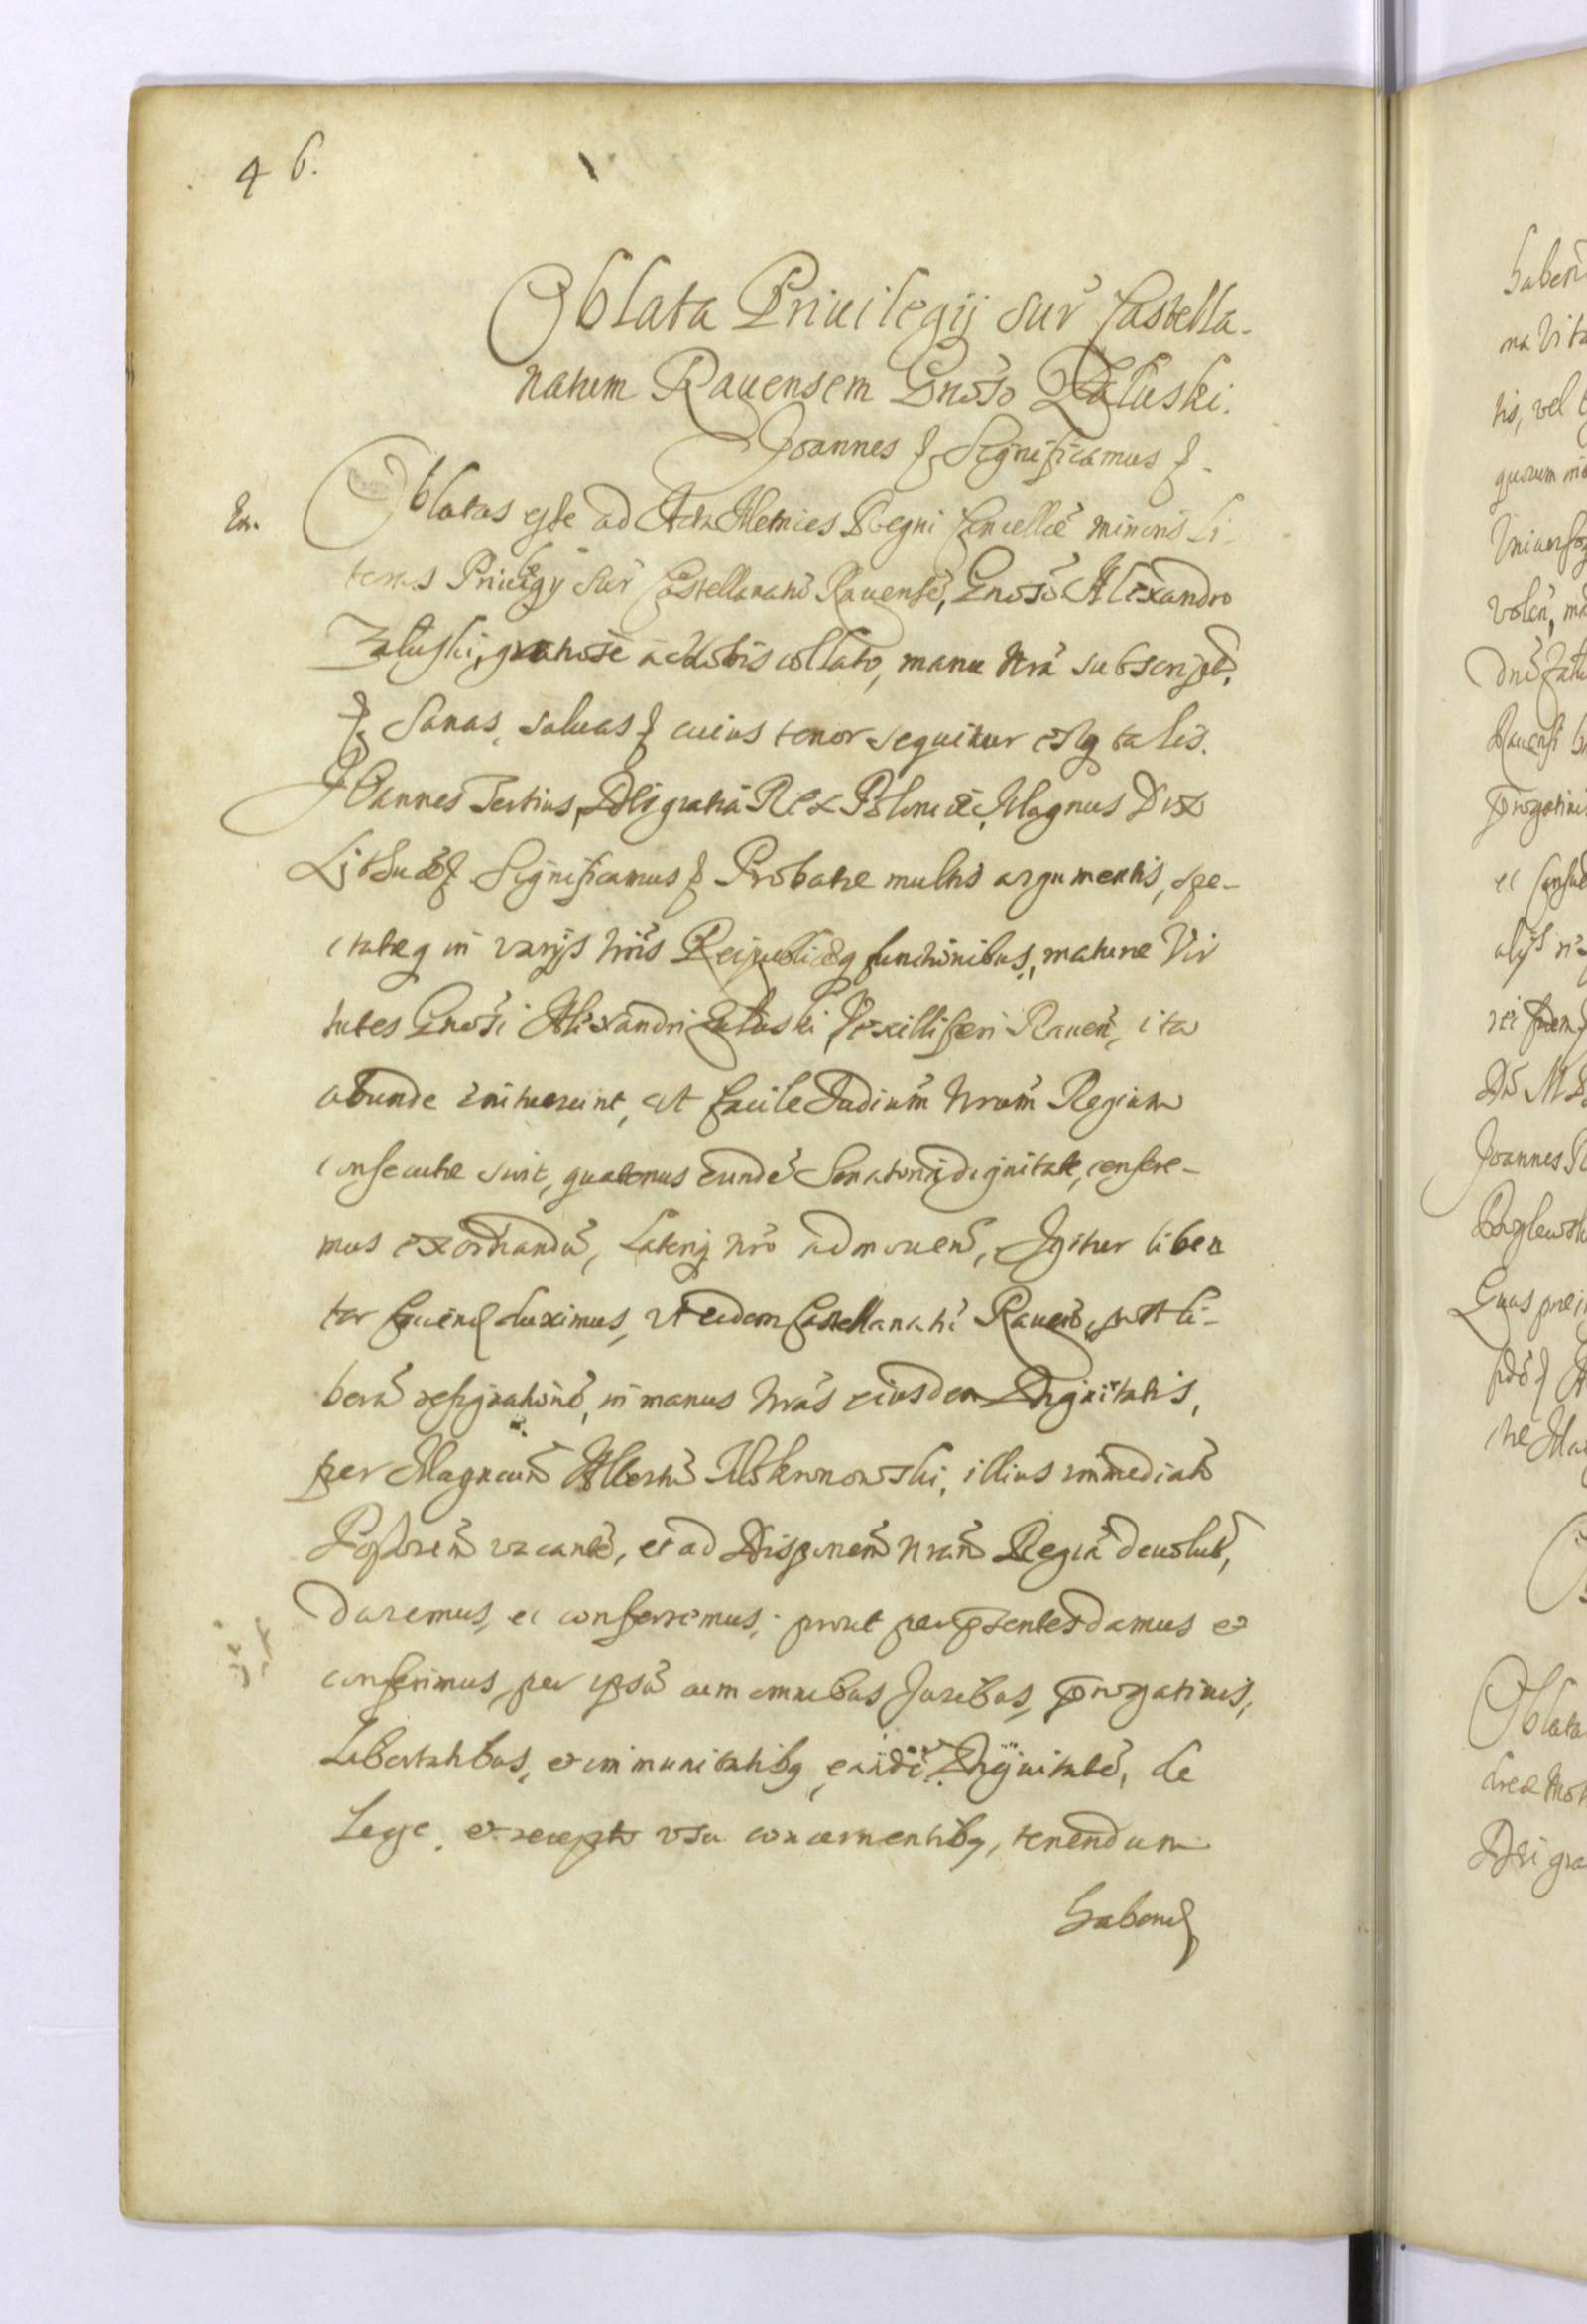 46.
Oblata Priuilegij sup̃ Castella-
natum Rauensem Gnõso Załuski.
Joannes & Significamus &
Ex.
Oblatas esse ad Acta Metrices Regni Cancellæ minoris Li-
teras Priuilegij sup̃ Castellanatũ Rauensẽ, Gnõso Alexandro
Załuski, gratiose a Nobis collato, manu Nrã subscript,
& Sanas, saluas & cuius tenor sequitur estq talis.
JOannes Tertius, Dei gratia Rex Poloniæ, Magnus Dux
Lithuæ & Significamus & Probatæ multis argumentis, spe-
ctatæq in varijs nrĩs Reipublicæq functionibus, maturæ Vir
tutes Gnõsi Alexandri Załuski, Vexilliferi Rauen, ita
abunde enituerunt, ut facile Judiũm Nrũm Regium
consecutæ sint, quatenus eundẽ Senatoria dignitate, censere-
mus exornandũ, Lateriq nrõ admouend, Igitur liben
ter faciend duximus, ut eidem Castellanatũ Rauens, post li-
berã resignationẽ, in manus Nrãs eiusdem Dignitatis,
per Magncum Albertũ Mokronowski, illius immediatũ
Possorem vacantẽ, et ad Dispõnem Nrãm Regiã deuolut,
daremus, et conferremus, prout per p̃sentes damus et
conferimus, per ipsũ cum omnibus Juribus, p̃rogatiuis,
Libertatibus, et immunitatibq, eandẽ Dignitatẽ, de
Lege, et recepto vsu concernentibq, tenendum
habend
haben
na Vita
tis, vel
quorum
Vniuersos
volen,
Dnũ Zału
Rauensi
p̃rogatiui
et
alijs
rei fidem
Joannes
Quas prei
Oblata
Dei gra